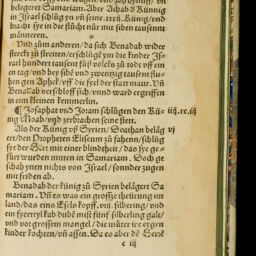 belegeret Samariam. Aber Achab d Künnig
in Israel schlůg yn vñ seine .xxxij. Künig/vnd
bracht sye in die flucht mit siben tausennt
männeren.
Vnd zům anderen/da sich Benadab wider
sterckt zů streiten/erschlůgē ym die kinder Is-
rael hundert tausent fůß volcks zů todt vff ein
en tag/vnd bey sibē vnd zwentzig tausent flu-
hen gen Aphek/vff die fyel der statt maur. Vñ
Benadab verschloff sich/vnnd ward ergriffen
in eim kleinen kemmerlin.
¶ Josaphat vnd Joram schlůgen den Kü-
nig Moab/vnd zerbrachen seine stett.
iij.re.iij
Als der Künig vß Syrien/Doathan beläg
ert/den Propheten Eliseum zů fahenn/schlůg
vj
sye der Herr mit einer blindtheit/das sye ge-
fürt wurden mitten in Samariam. Doch ge
schah ynen nichts von Israel/sonnder zugen
mit freden ab.
Benadab der künig zů Syrien belägert Sa
mariam. Vñ es was ein grosse theürung im
land/das eins Esels kopff .viij. silberling/vnd
ein fyerteyl kab dubē mist fünf silberling gale/
vnd vor grossem mangel/die můter ire eygen
kinder kochten/vñ assen. Da es aber dē
c iij